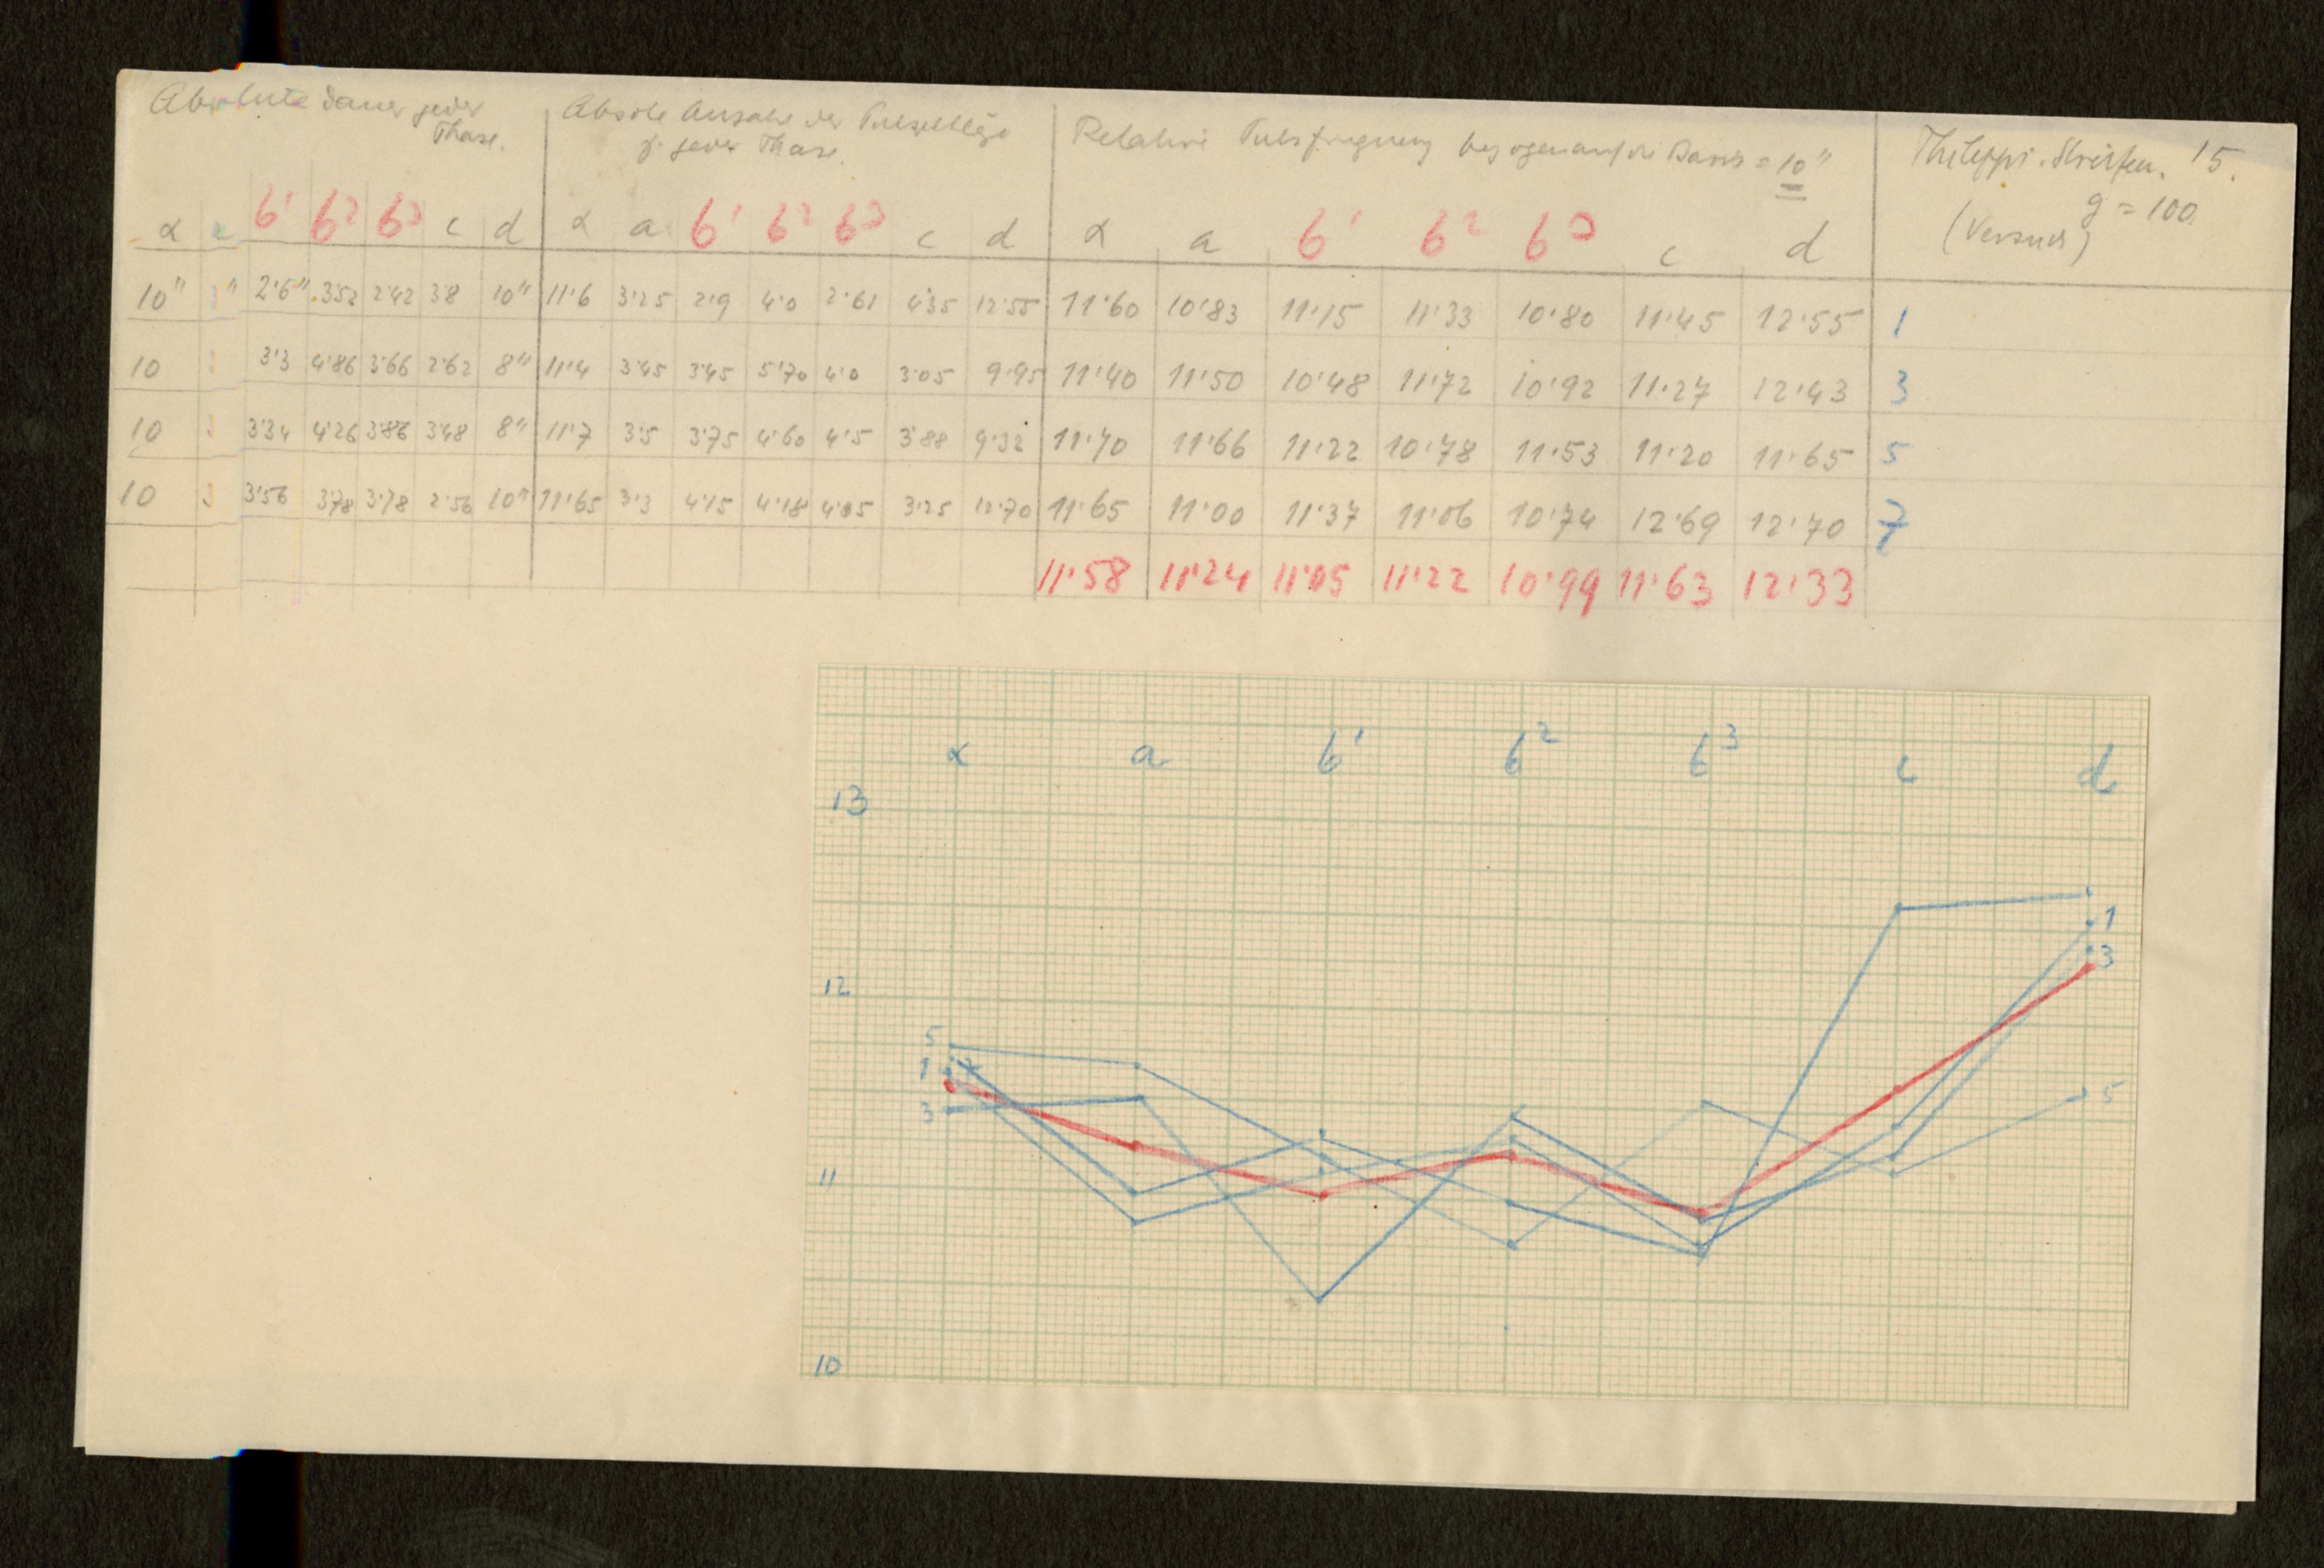 Absolute Dauer jeder
Phase.
Absolte Anzahl der Pulsschläge
jeder Phase.
Relative Pulsfrequenz bezogen auf die Basis = 10"
Philippi. Streifen. 15.
g = 100
(Versuch)
α a b¹ b² b³ c d α a b¹ b² b³ c d α a b¹ b² b³ c d
10" 3" 2·6" 3·52 2·42 3·8 10" 11·6 3·25 2·9 4·0 2·61 4·35 12·55 11·60 10·83 11·15 11·33 10·80 11·45 12·55 1
10 3 3·3 4·86 3·66 2·62 8" 11·4 3·45 3·45 5·70 4·0 3·05 9·95 11·40 11·50 10·48 11·72 10·92 11·27 12·43 3
10 3 3·34 4·26 3·86 3·48 8" 11·7 3·5 3·75 4·60 4·5 3·88 9·32 11·70 11·66 11·22 10·78 11·53 11·20 11·65 5
10 3 3·56 3·78 3·78 2·56 10" 11·65 3·3 4·15 4·18 4·05 3·25 12·70 11·65 11·00 11·37 11·06 10·74 12·69 12·70 7
11·58 11·24 11·05 11·22 10·99 11·63 12·33
α a b¹ b² b³ c d
13
1
3
12
5
1 7
3
5
11
10